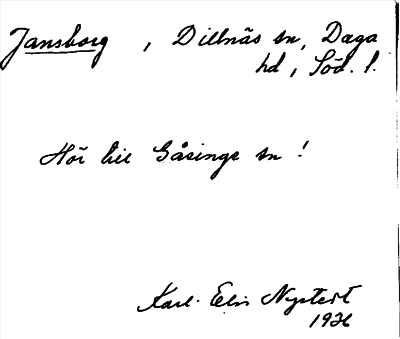 Jansborg, Dillnäs sn, Daga
hd, Söd. l.
Hör till Gåsinge sn!
Karl-Elis Nystedt
1926